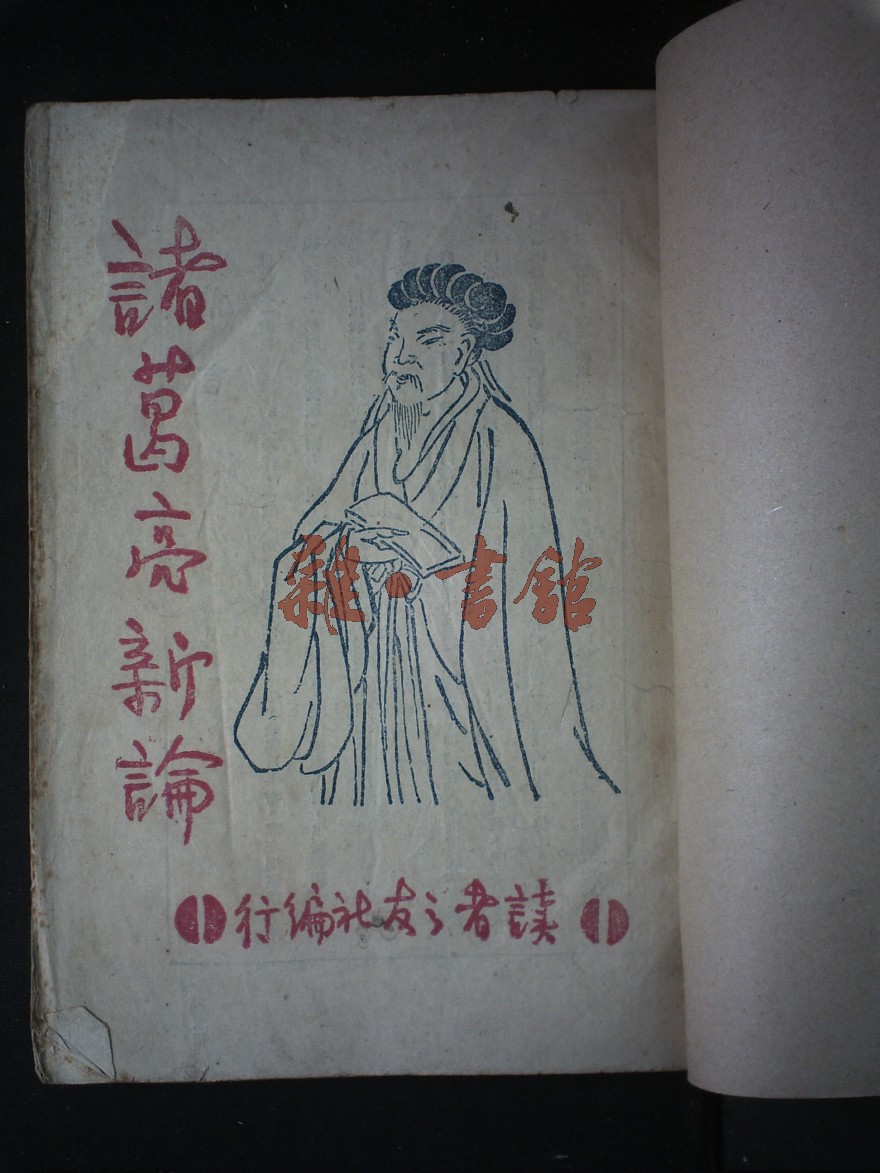 諸葛亮新論
雜·書館
讀者之友社編行